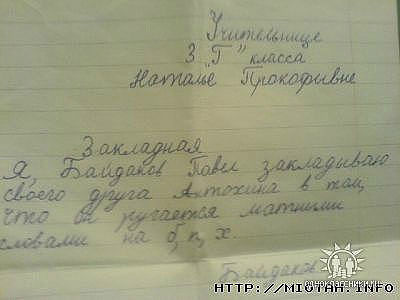 Учительнице
3 "Г" класса
Наталье Прокофьвне
Закладная
Я, Байдаков Павел закладываю
своего друга Антохина в том,
что он ругается матными
словами на б, п, х.
Байдаков
одноклассники.ru
HTTP://MIUTAH.INFO